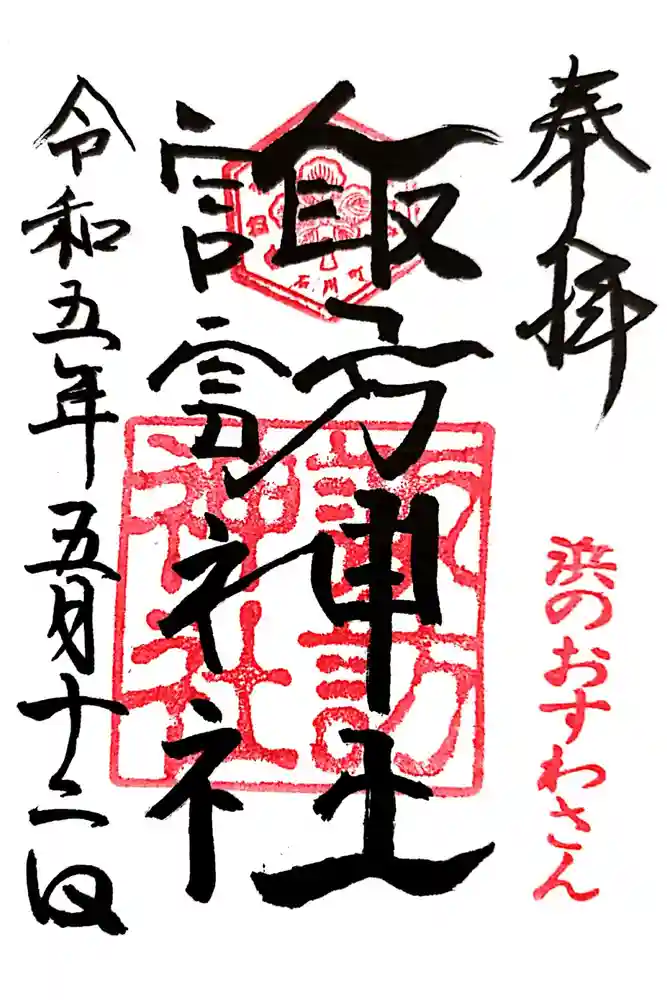 奉拝
浜のおすわさん
諏訪神社
諏訪神社
石川町
令和五年五月十二日